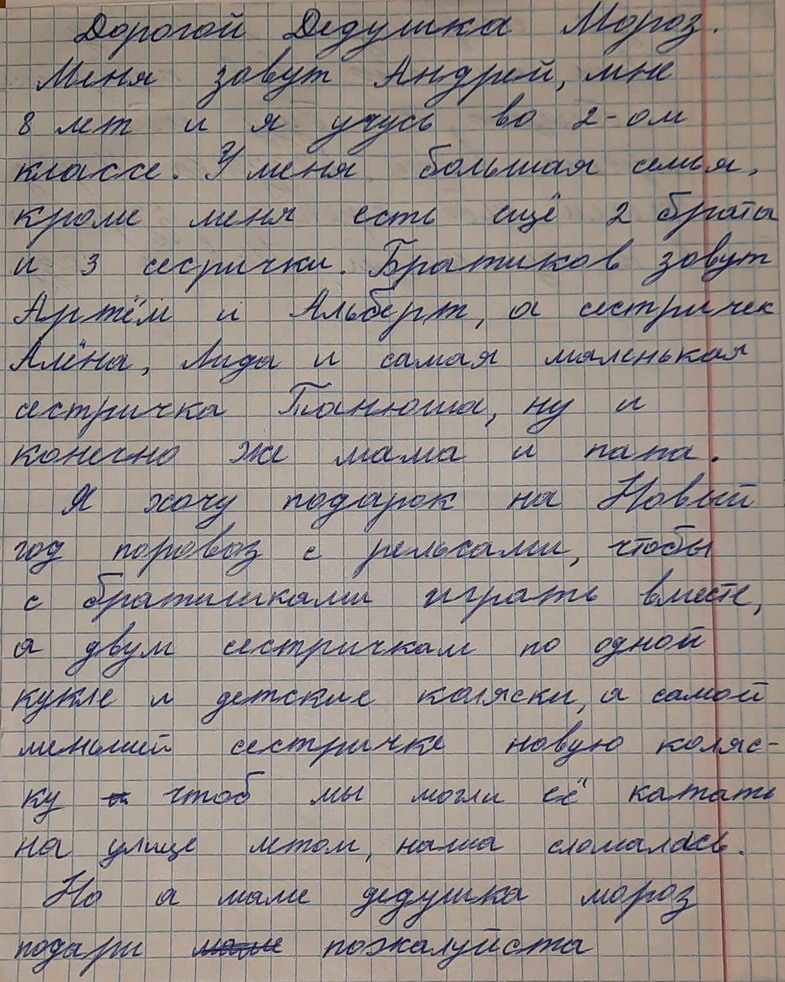 Дорогой Дедушка Мороз.
Меня зовут Андрей, мне
8 лет и я учусь во 2-ом
классе. У меня большая семья,
кроме меня есть ещё 2 брата
и 3 сесрички. Братиков зовут
Артём и Альберт, а сестричек
Алёна, Лида и самая маленькая
сестричка Танюша, ну и
конечно же мама и папа.
Я хочу подарок на Новый
год поровоз с рельсами, чтобы
с братишками играть вместе,
а двум сестричкам по одной
кукле и детские коляски, а самой
меньшей сестричке новую коляс-
ку чтоб мы могли её катать
на улице летом, наша сломалась.
Но а маме дедушка мороз
подари пожалуйста